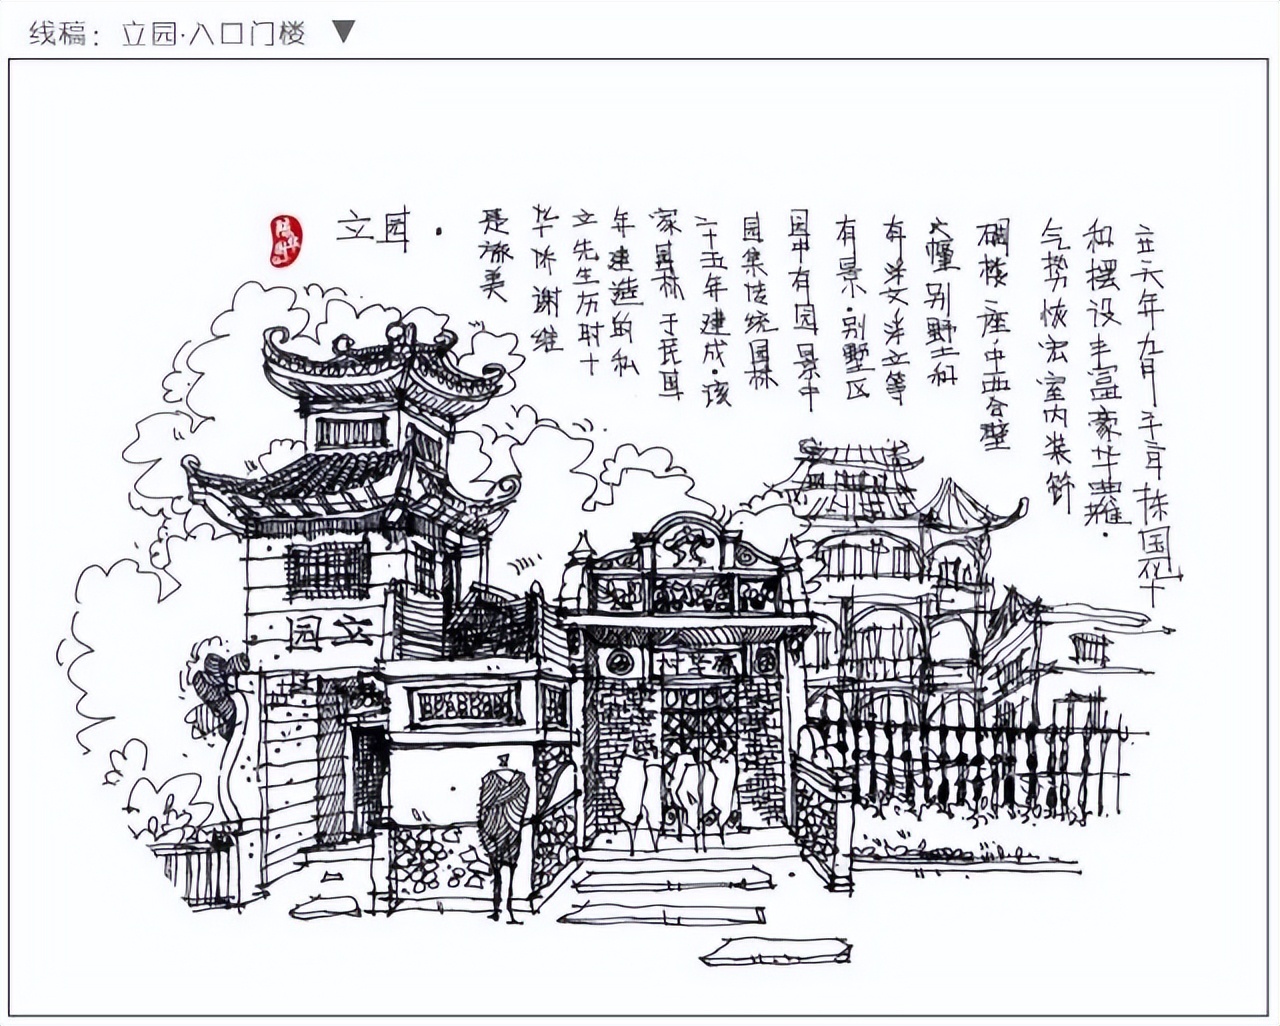 线稿：立园·入口门楼 ▼
立园·
是旅美
华侨谢维
立先生历时十
年建造的私
家园林于民国
二十五年建成·该
园集传统园林
园中有园景中
有景·别墅区
有泮文泮立等
六幢别墅和
碉楼一座,中西合璧
气势恢宏室内装饰
和摆设丰富豪华典雅.
年九月于
立园
华村